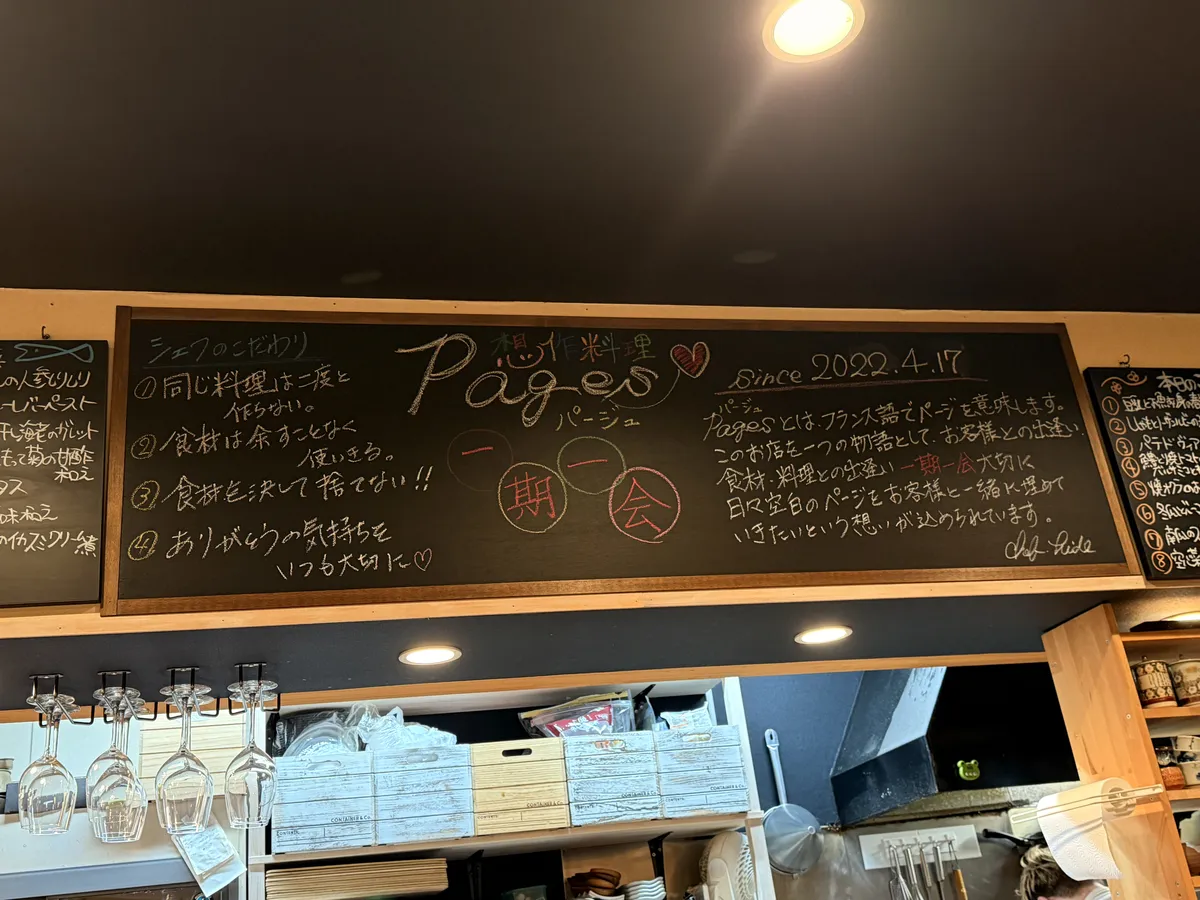 の人参しりしり
レバーペースト
干し海老のガレット
もって菊の甘酢
和え
タス
味和え
のイカスミクリーム煮
シェフのこだわり
① 同じ料理は二度と
作らない。
② 食材は余すことなく
使いきる。
③ 食材を決して捨てない!!
④ ありがとうの気持ちを
いつも大切に♡
想作料理
Pages
パージュ
一期一会
since 2022.4.17
パージュ
Pagesとは、フランス語でページを意味します。
このお店を一つの物語として、お客様との出逢い
食材、料理との出逢い 一期一会大切に
日々空白のページをお客様と一緒に埋めて
いきたいという想いが込められています。
Chef. Hide
本日の
①
②
③
④
⑤
⑥
⑦
⑧
CONTAINER & Co.
CONTAINER & Co.
CONTAINER & Co.
CONTAINER & Co.